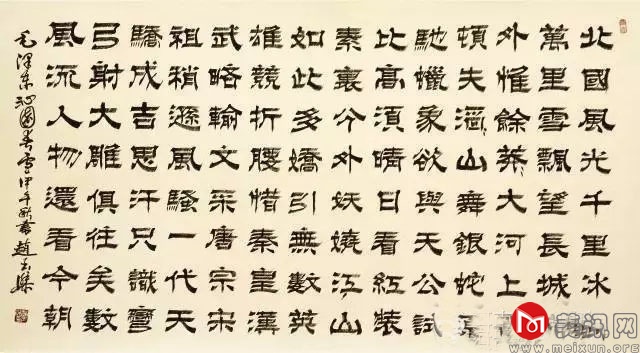 北國風光千里冰
萬里雪飄望長城
外惟餘莽大河上
頓失滔山舞銀蛇
馳蠟象欲與天公試
比高須晴日看紅裝
素裹分外妖嬈江山
如此多嬌引無數英
雄競折腰惜秦皇漢
武略輸文采唐宗宋
祖稍遜風騷一代天
驕成吉思汗只識彎
弓射大雕俱往矣數
風流人物還看今朝
毛澤東沁園春雪甲午秋書趙
美讯网
www.meixun.org